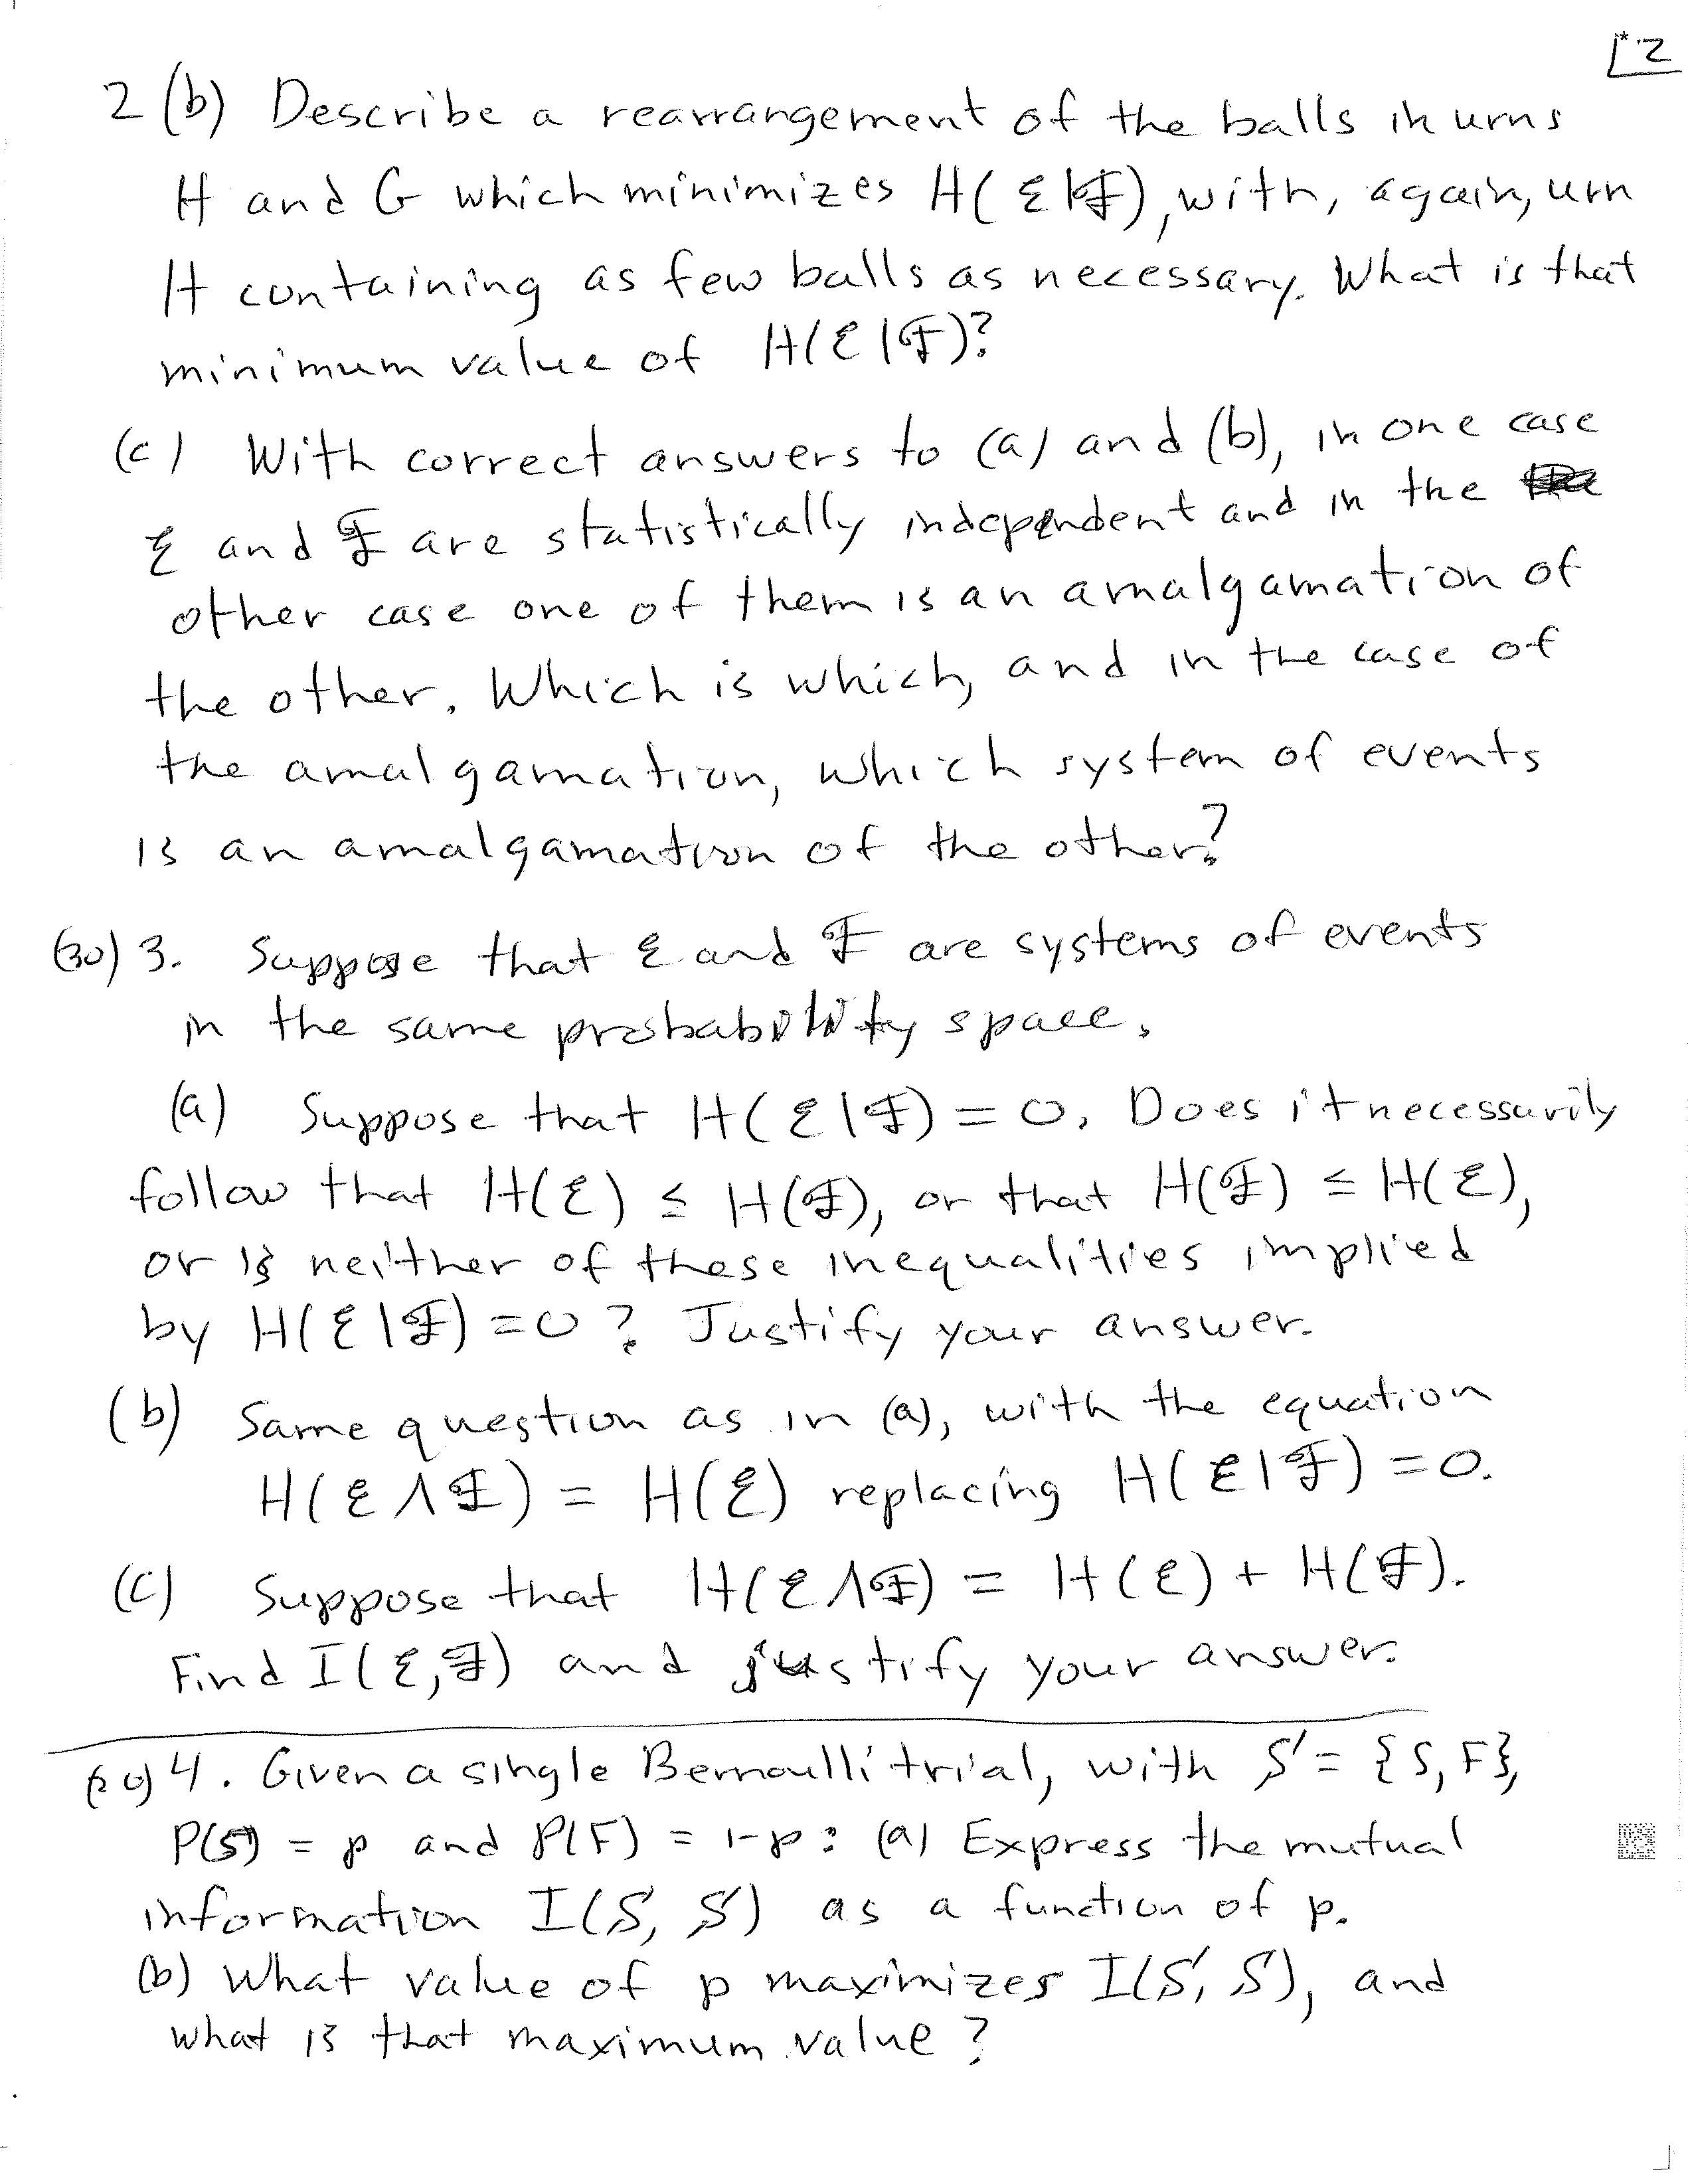 *2
2 (b) Describe a rearrangement of the balls in urns
H and G which minimizes H(ℰ|ℱ), with, again, urn
H containing as few balls as necessary. What is that
minimum value of H(ℰ|ℱ)?
(c) With correct answers to (a) and (b), in one case
ℰ and ℱ are statistically independent and in the
other case one of them is an amalgamation of
the other. Which is which, and in the case of
the amalgamation, which system of events
is an amalgamation of the other?
(30) 3. Suppose that ℰ and ℱ are systems of events
in the same probability space.
(a) Suppose that H(ℰ|ℱ) = 0. Does it necessarily
follow that H(ℰ) ≤ H(ℱ), or that H(ℱ) ≤ H(ℰ),
or is neither of these inequalities implied
by H(ℰ|ℱ) = 0? Justify your answer.
(b) Same question as in (a), with the equation
H(ℰ ∧ ℱ) = H(ℰ) replacing H(ℰ|ℱ) = 0.
(c) Suppose that H(ℰ ∧ ℱ) = H(ℰ) + H(ℱ).
Find I(ℰ, ℱ) and justify your answer.
4. Given a single Bernoulli trial, with S = {S, F},
P(S) = p and P(F) = 1-p: (a) Express the mutual
information I(S, S) as a function of p.
(b) What value of p maximizes I(S, S), and
what is that maximum value?